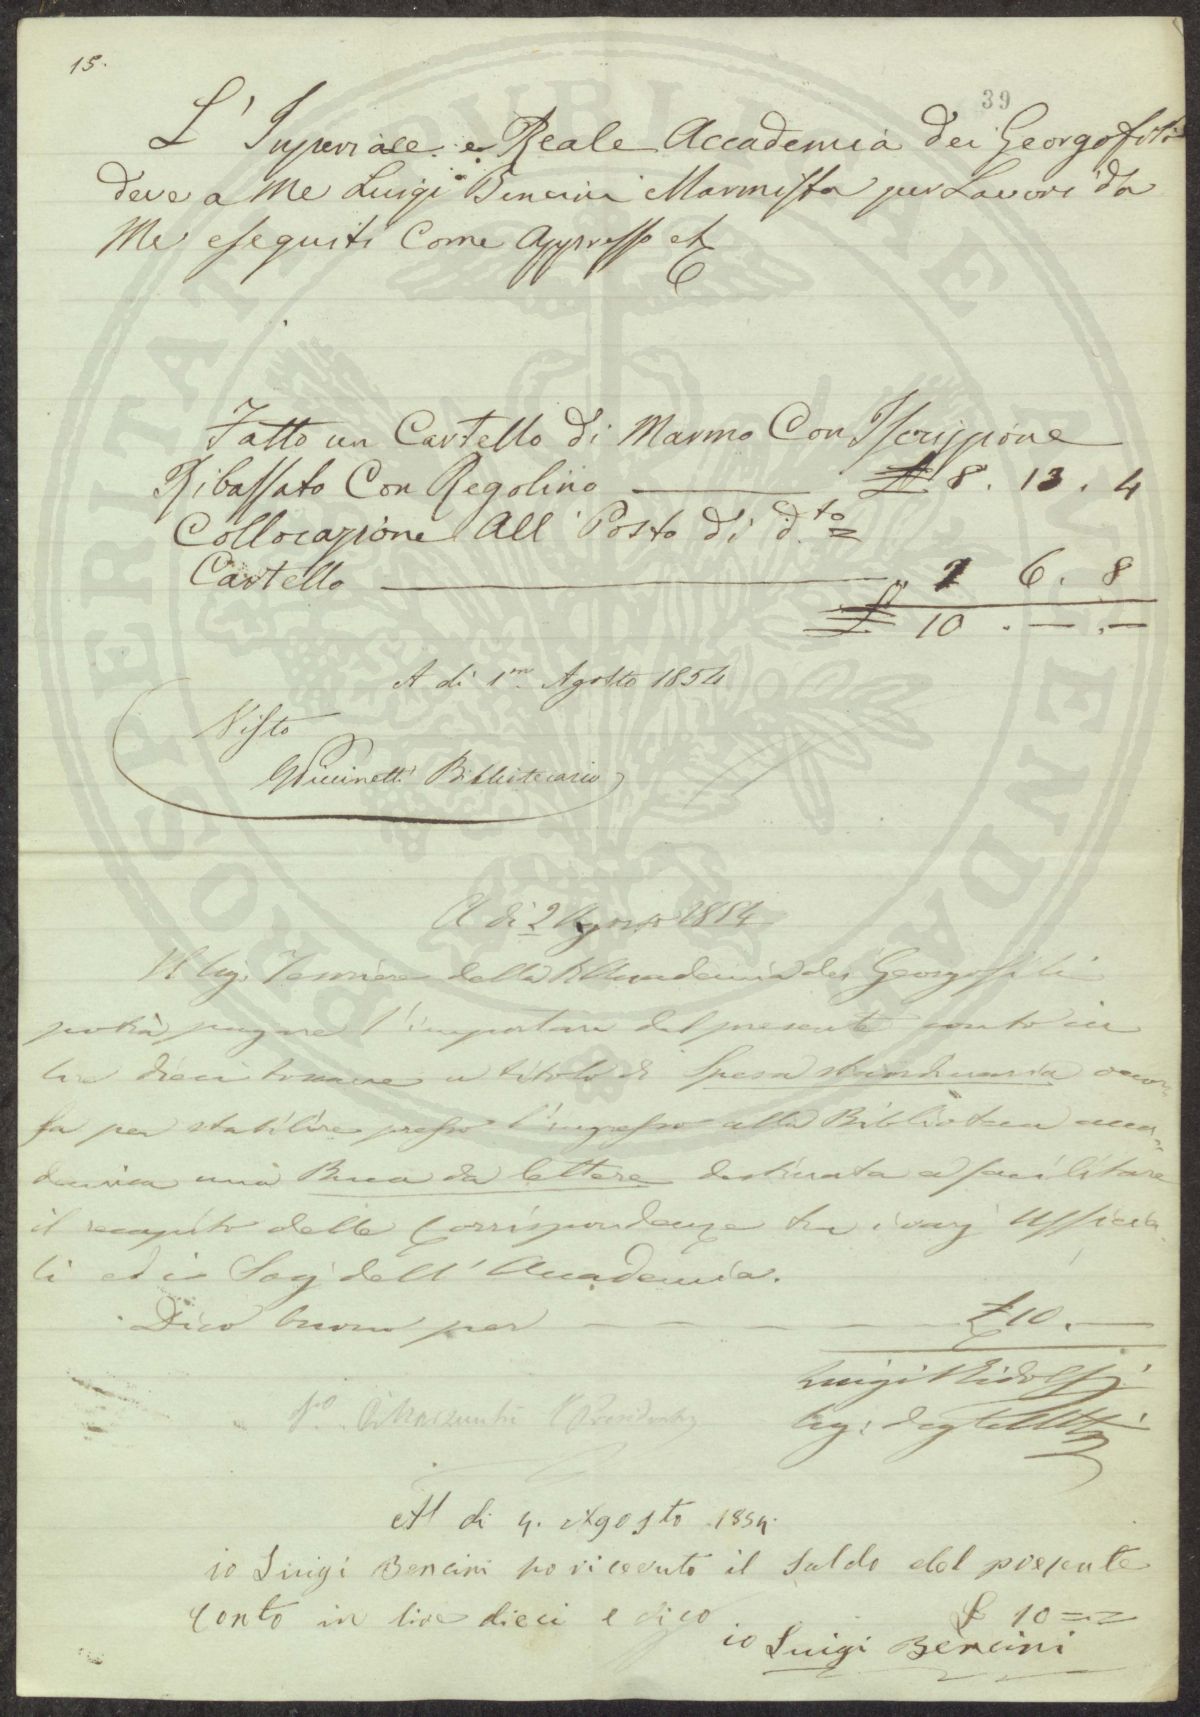 15.
39
L'Imperiale e Reale Accademia dei Georgofili
deve a Me Luigi Bencini Marmista per Lavori da
Me eseguiti Come Appresso
Fatto un Cartello di Marmo Con Iscrizione
Ribassato Con Regolino £ 8. 13. 4
Collocazione All Posto di d.to =
Cartello " 1 6. 8
£ 10. — . —
A dì 1mo Agosto 1854
Visto
Bibliotecario
A dì 2 Agosto 1854
Il Sig. Tesoriere della R Accademia dei Georgofili
potrà pagare l'importare del presente conto in
lire dieci toscane a titolo di Spesa straordinaria occor-
sa per stabilire presso l'ingresso alla Biblioteca acca-
demica una Buca da lettere destinata a facilitare
il recapito delle Corrispondenze tra i varj Ufficia-
li ed i Socj dell'Accademia.
Dico buono per £ 10. —
Luigi Ridolfi
Seg: degli Atti
Al di 4. Agosto 1854.
io Luigi Bencini ho ricevuto il saldo del presente
Conto in lire dieci e dico £ 10 = =
io Luigi Bencini
PROSPERITATI PUBLICAE AUGENDAE